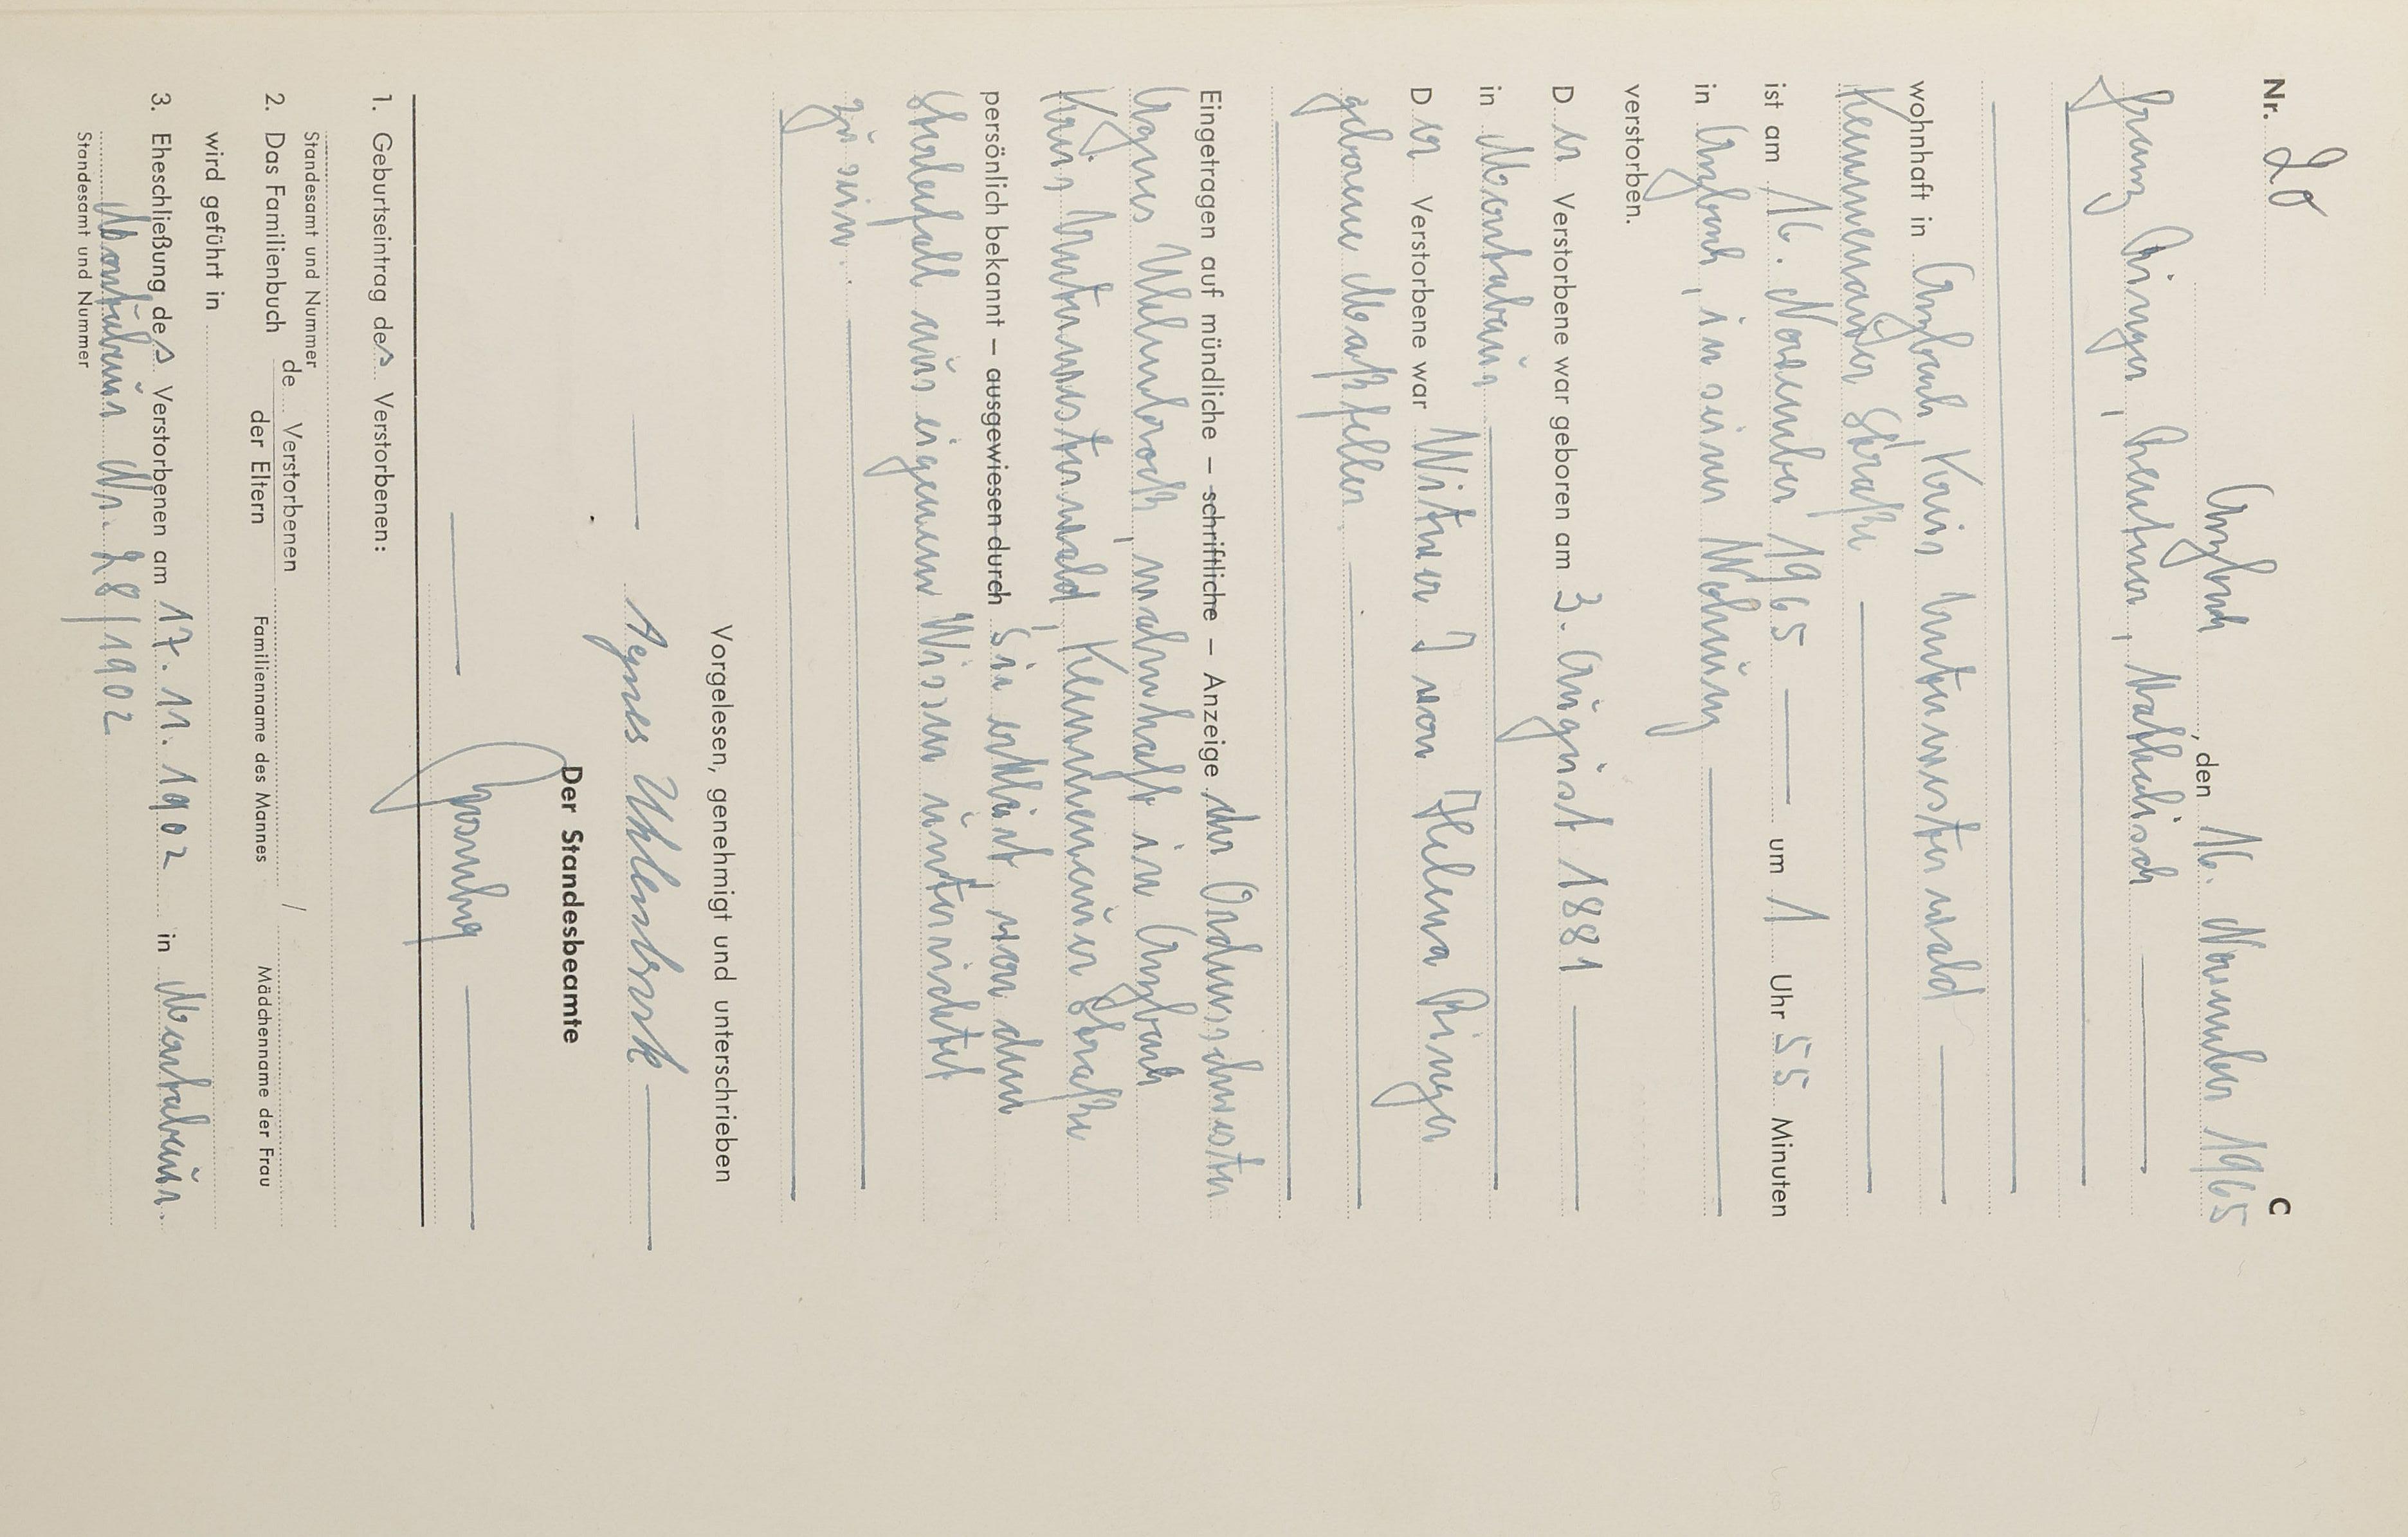 Nr. 20 C
Arzbach, den 16. November 1965
Franz Ringer, Rentner, katholisch
wohnhaft in Arzbach, Kreis Unterwesterwald
Kemmenauer Straße
ist am 16. November 1965 um 1 Uhr 55 Minuten
in Arzbach, in seiner Wohnung
verstorben.
Der Verstorbene war geboren am 3. August 1881
in Montabaur
Der Verstorbene war Witwer von Helena Ringer
geborene
Eingetragen auf mündliche – schriftliche – Anzeige der Ordensschwester
Agnes Uhlenbrock, wohnhaft in Arzbach
Kreis Unterwesterwald, Kemmenauer Straße
persönlich bekannt – ausgewiesen durch Sie erklärt, von dem
Sterbefall aus eigenem Wissen unterrichtet
zu sein.
Vorgelesen, genehmigt und unterschrieben
Agnes Uhlenbrock
Der Standesbeamte
1. Geburtseintrag des Verstorbenen:
Standesamt und Nummer
2. Das Familienbuch de Verstorbenen
der Eltern Familienname des Mannes / Mädchenname der Frau
wird geführt in
3. Eheschließung des Verstorbenen am 17.11.1902 in Montabaur.
Montabaur Nr. 28/1902
Standesamt und Nummer